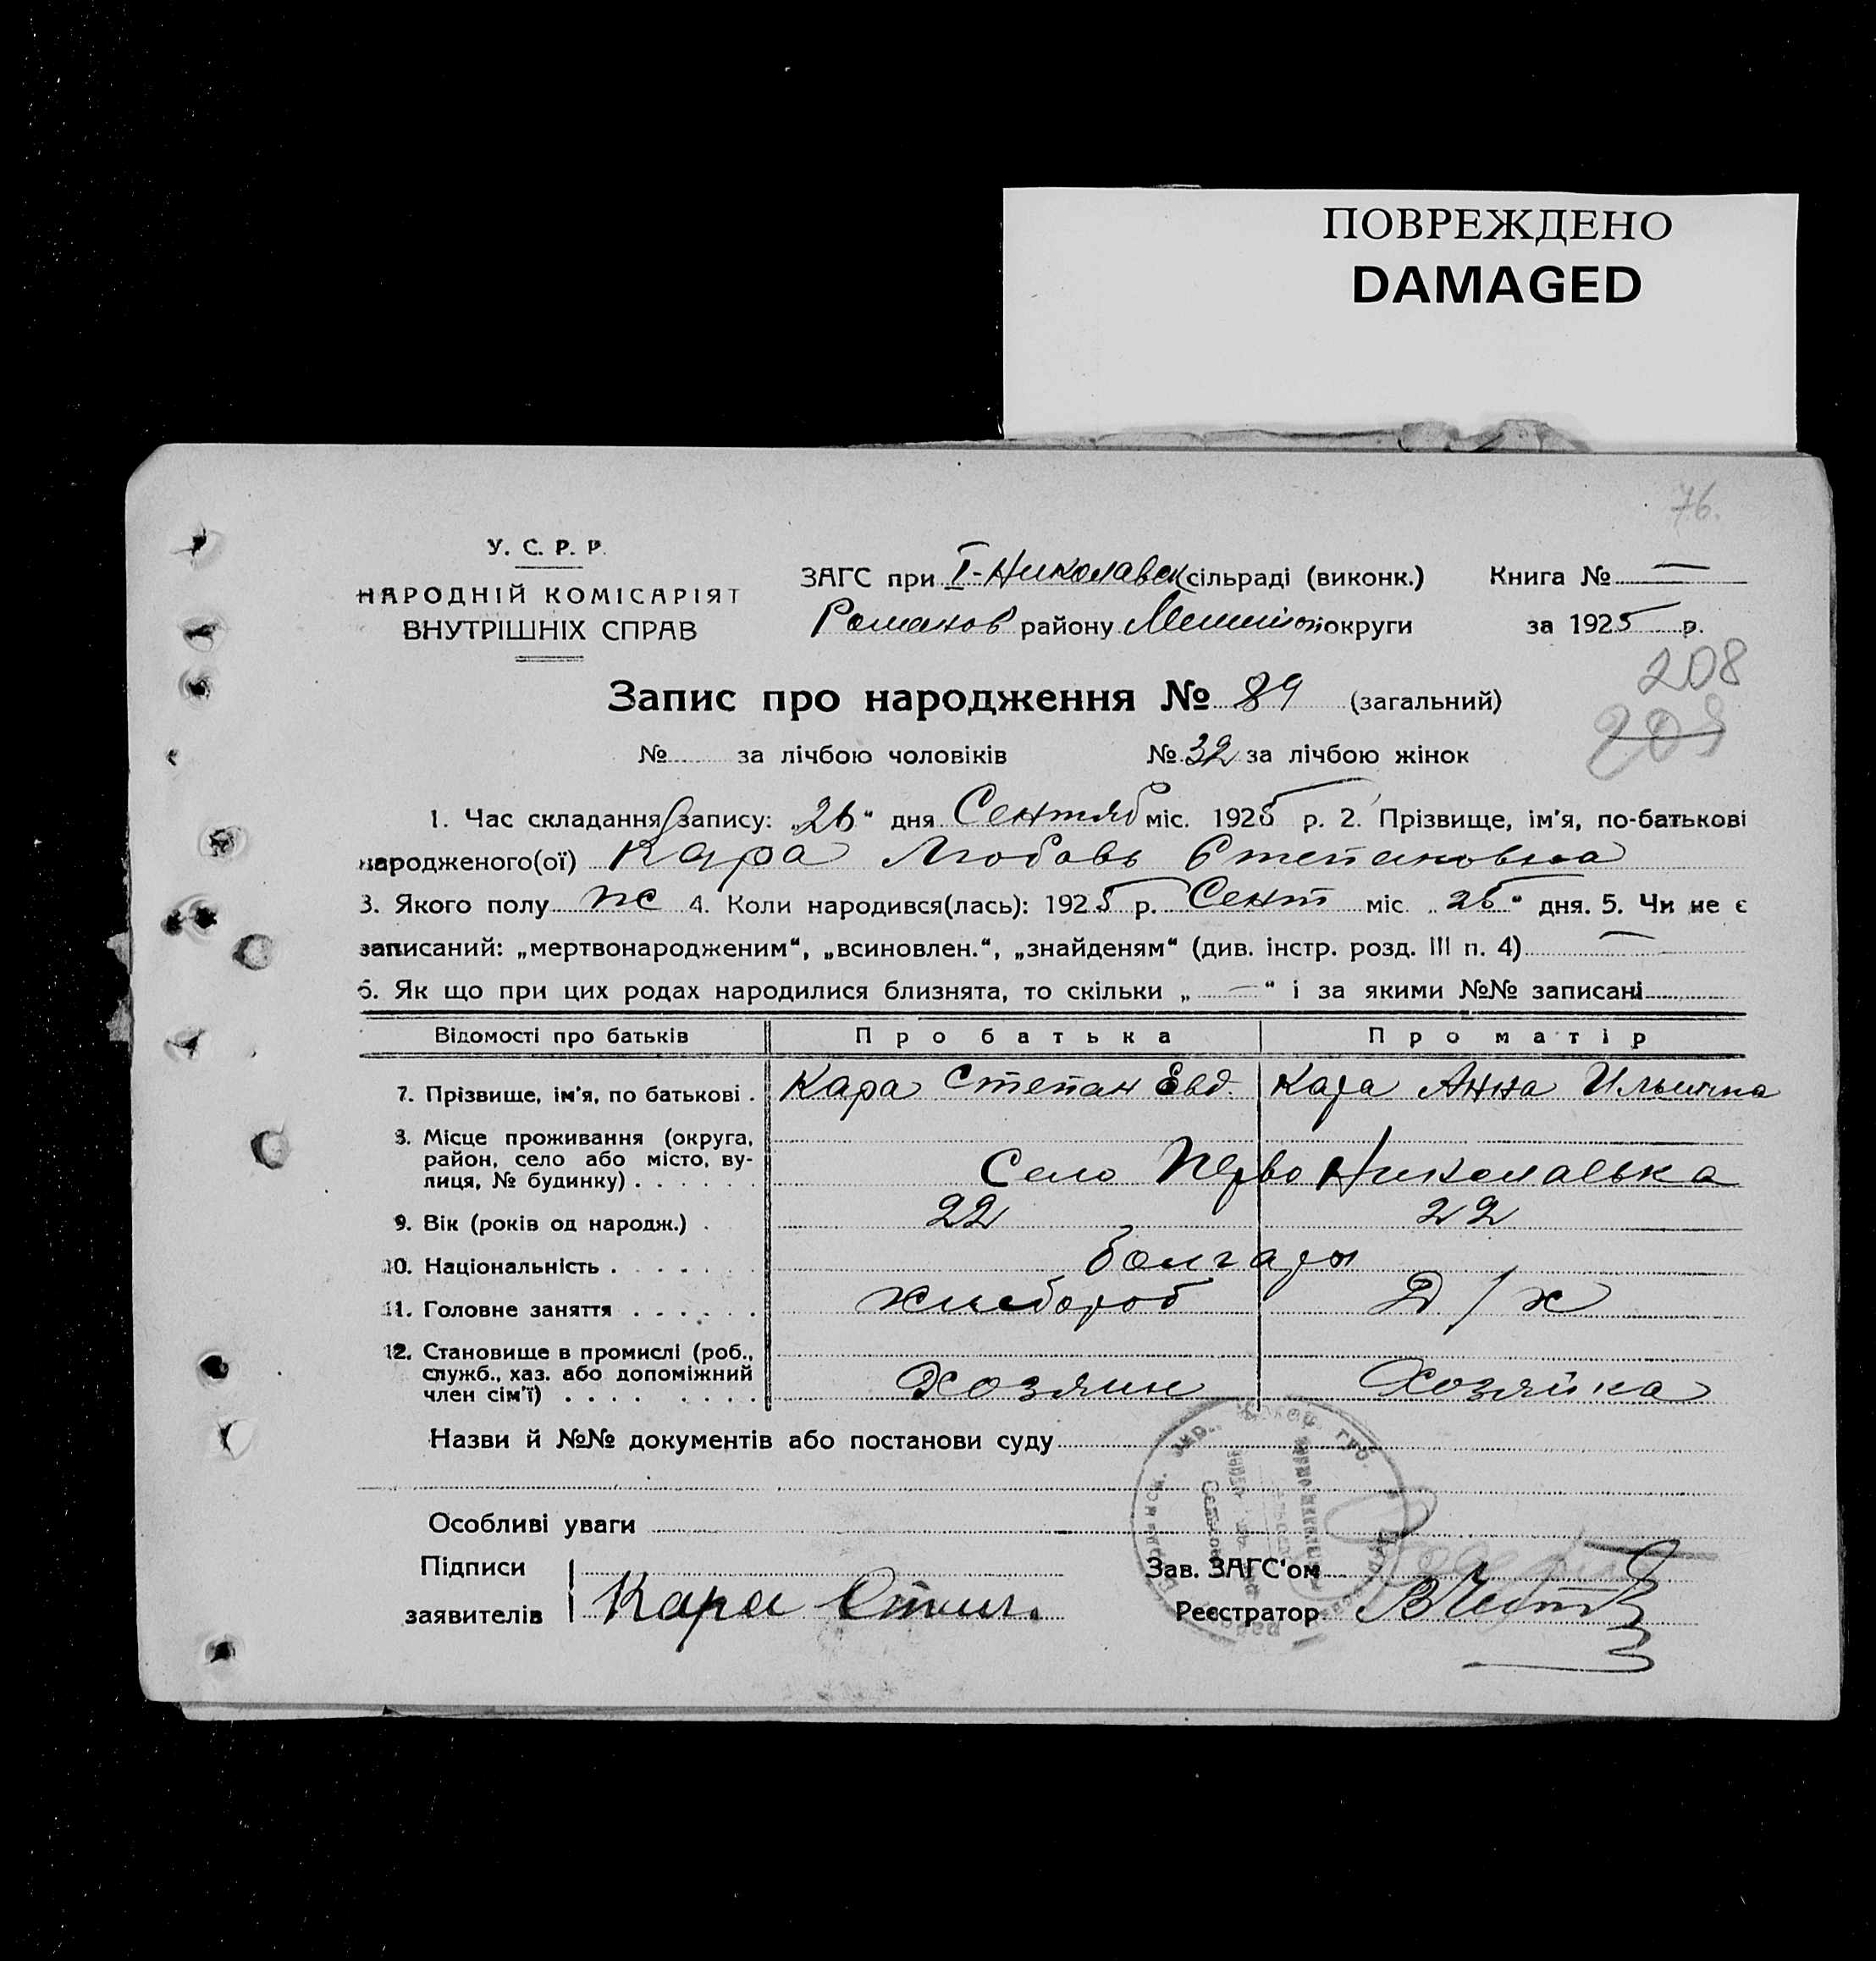 ПОВРЕЖДЕНО
DAMAGED
76.
У. С. Р. Р.
НАРОДНІЙ КОМІСАРІЯТ
ВНУТРІШНІХ СПРАВ
ЗАГС при I-Николавск сільраді (виконк.) Книга № —
Романов району округи за 1925 р.
208
Запис про народження № 89 (загальний)
209
№ за лічбою чоловіків № 32 за лічбою жінок
1. Час складання запису: „26“ дня Сентяб міс. 1925 р. 2. Прізвище, ім'я, по-батькові
народженого(ої) Кара Любовь Степановна
3. Якого полу ж 4. Коли народився(лась): 1925 р. Сент міс. „26“ дня. 5. Чи не є
записаний: „мертвонародженим“, „всиновлен.“, „знайденям“ (див. інстр. розд. III п. 4) —
6. Як що при цих родах народилися близнята, то скільки „—“ і за якими №№ записані
Відомості про батьків Про батька Про матір
7. Прізвище, ім'я, по батькові . Кара Степан Евд. Кара Анна Ильична
8. Місце проживання (округа,
район, село або місто, ву-
лиця, № будинку) . . . . . . Село Перво Николаевка
9. Вік (років од народж.) . 22 22
10. Національність . . . . . . болгары
11. Головне заняття . . . . . . хлебороб Д/х
12. Становище в промислі (роб.,
служб., хаз. або допоміжний
член сім'ї) . . . . . . . . Хозяин Хозяйка
Назви й №№ документів або постанови суду
Особливі уваги
Підписи
заявителів Кара Степ.
Зав. ЗАГС'ом
Реєстратор